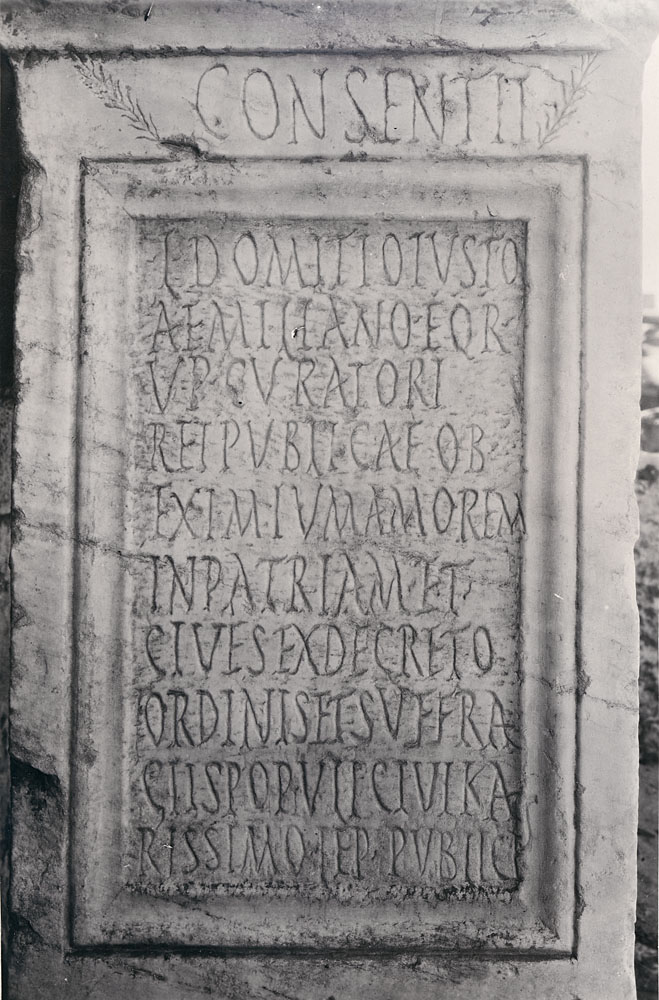 CONSENTII
L DOMITIO IVSTO
AEMILIANO·EQ R
V·P·CVRATORI
REI PVBLICAE OB
EXIMIVM AMOREM
IN PATRIAM ET
CIVES EX DECRETO
ORDINIS ET SVFFRA
GIIS POPVLI CIVI KA
RISSIMO LEP PVBLIC